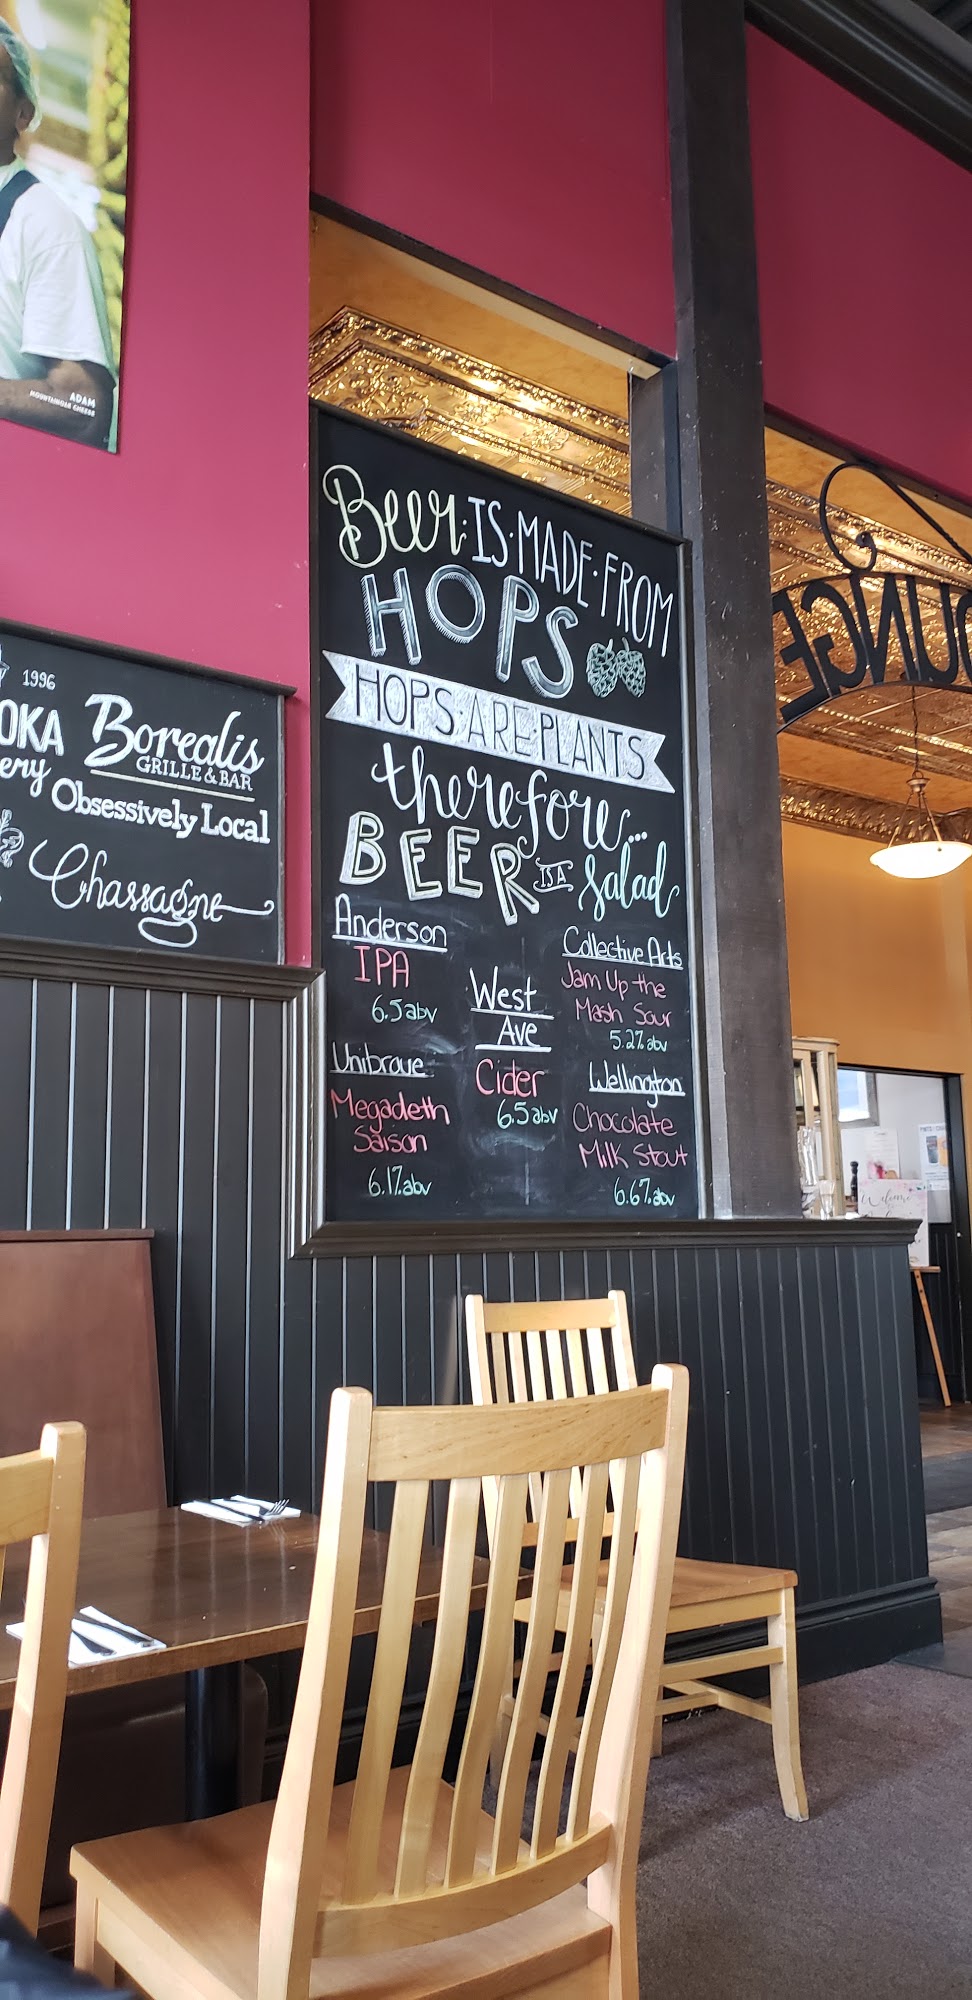 ADAM
MOUNTAINOAK CHEESE
1996
OKA
ery
Borealis
GRILLE & BAR
Obsessively Local
Chassagne
Beer·IS·MADE·FROM
HOPS
HOPS·ARE·PLANTS
therefore...
BEER IS A salad
Anderson
IPA
6.5abv
Unibroue
Megadeth
Saison
6.1%abv
West
Ave
Cider
6.5abv
Collective Arts
Jam Up the
Mash Sour
5.2%abv
Wellington
Chocolate
Milk Stout
6.6%abv
OUNGE
Welcome